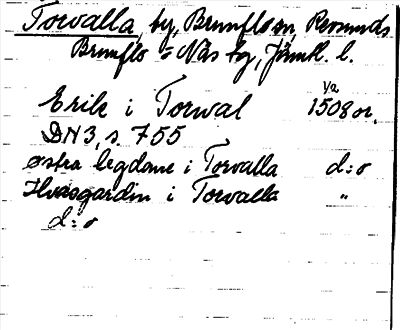 Torvalla, by, Brunflo sn, Revsunds
Brunflo = Näs tg, Jämtl. l.
Erik i Torwal 1/2 1508 or.
DN 3, s. 755
østra legdane i Torvalla d:o
Hvasgardin i Torvalla "
d:o